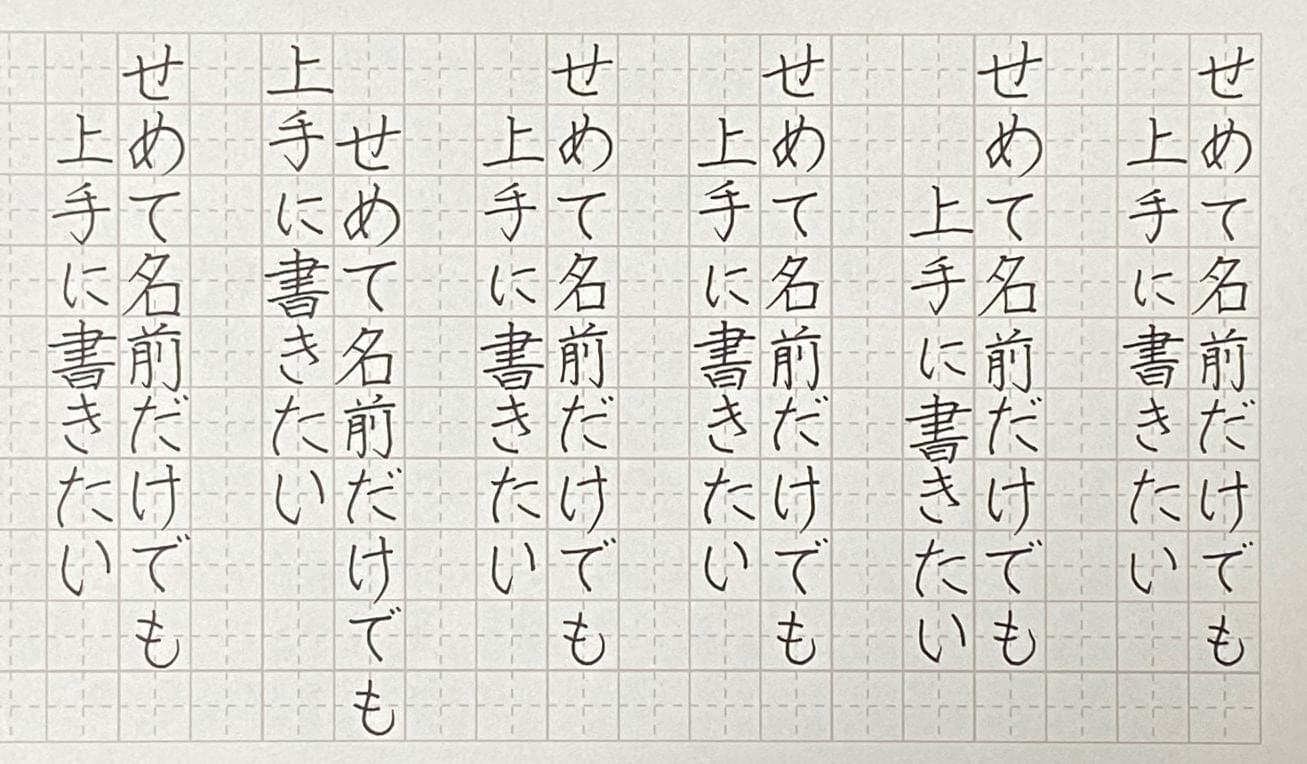 せめて名前だけでも
上手に書きたい
せめて名前だけでも
上手に書きたい
せめて名前だけでも
上手に書きたい
せめて名前だけでも
上手に書きたい
せめて名前だけでも
上手に書きたい
せめて名前だけでも
上手に書きたい